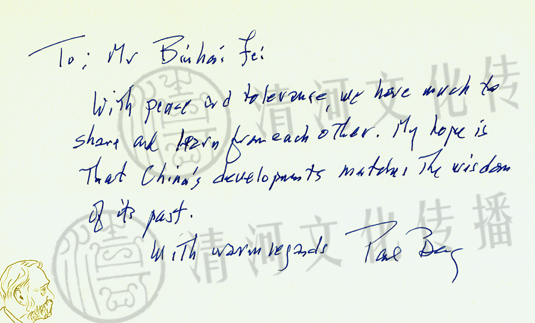 To; Mr Binhai Fei
With peace and tolerance, we have much to
share and learn from each other. My hope is
That China's developments matches The wisdom
of its past.
With warm regards Paul Berg
清河文化传
清河文化传播